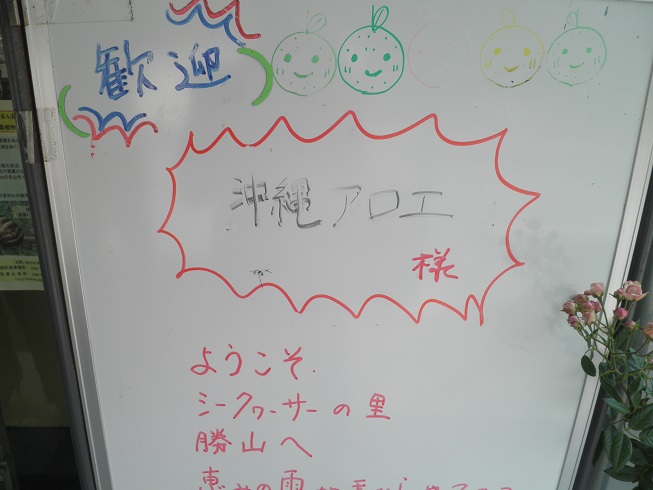 歓迎
沖縄アロエ
様
ようこそ.
シークヮーサーの里
勝山へ